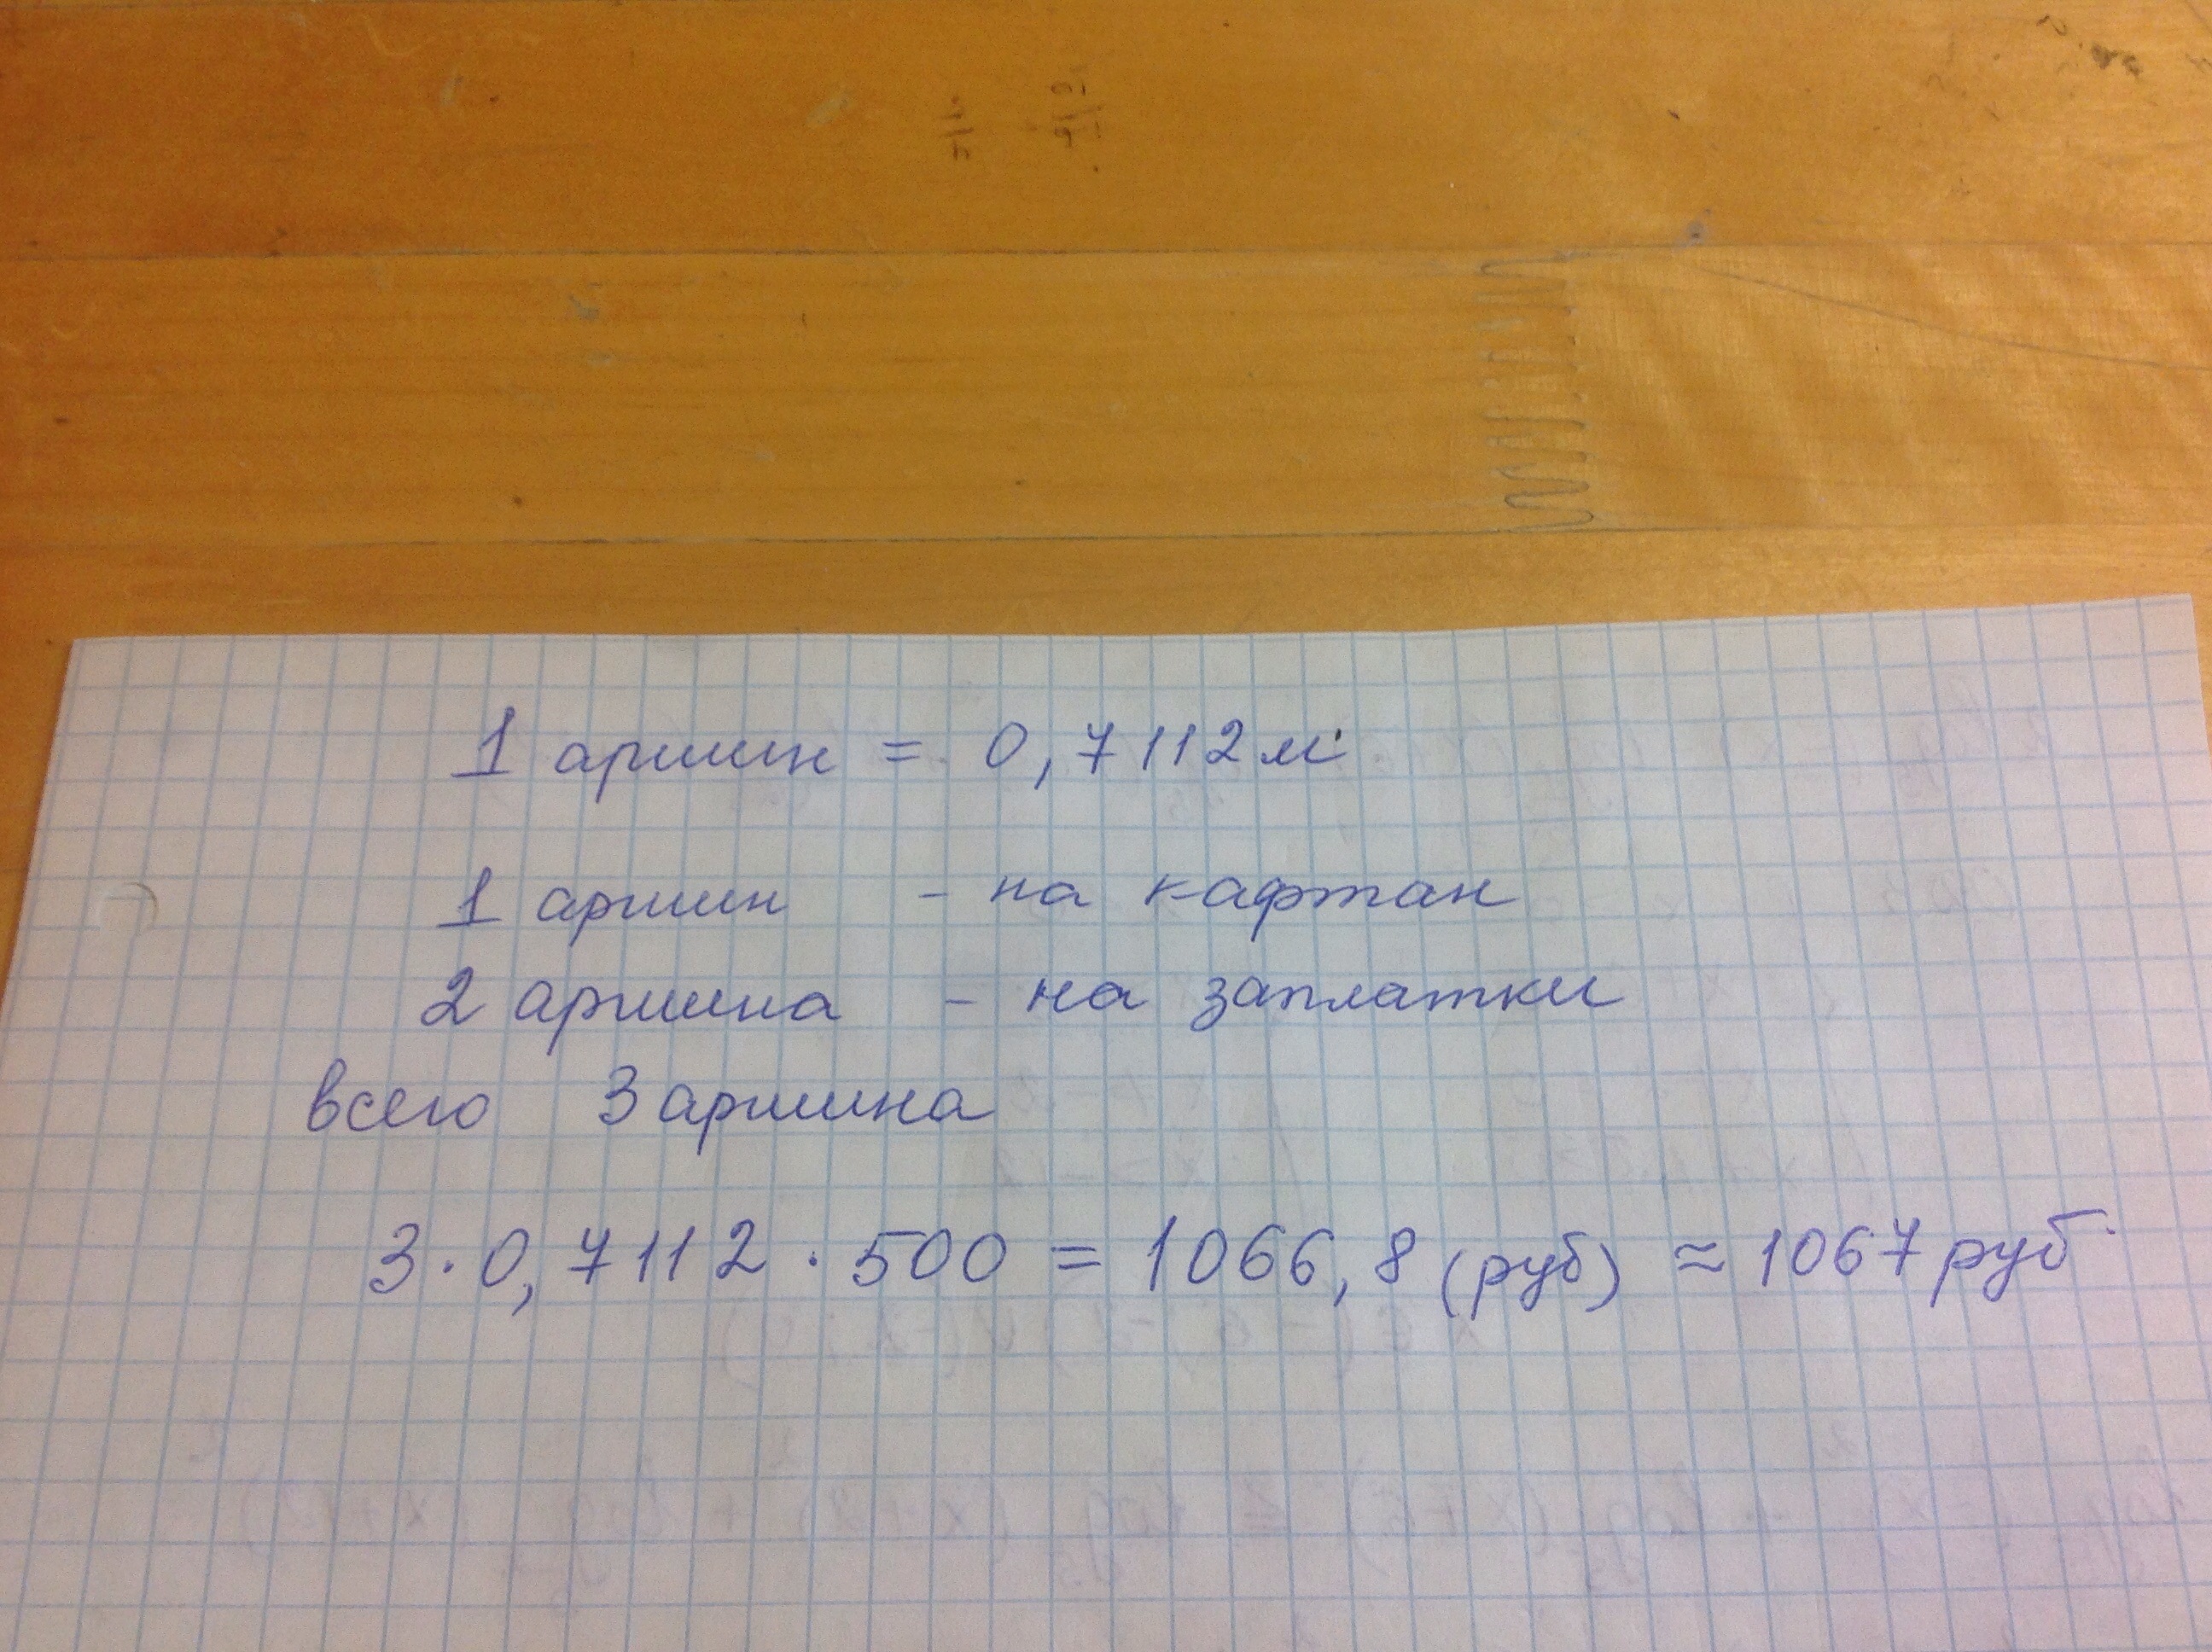 1 аршин = 0,7112 м
1 аршин - на кафтан
2 аршина - на заплатки
всего 3 аршина
3 · 0,7112 · 500 = 1066,8 (руб) ≈ 1067 руб.